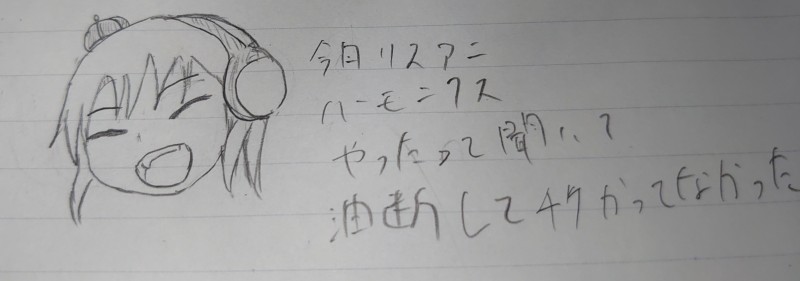 今月リスアニ
ハーモニクス
やったって聞いて
油断してチケかってなかった